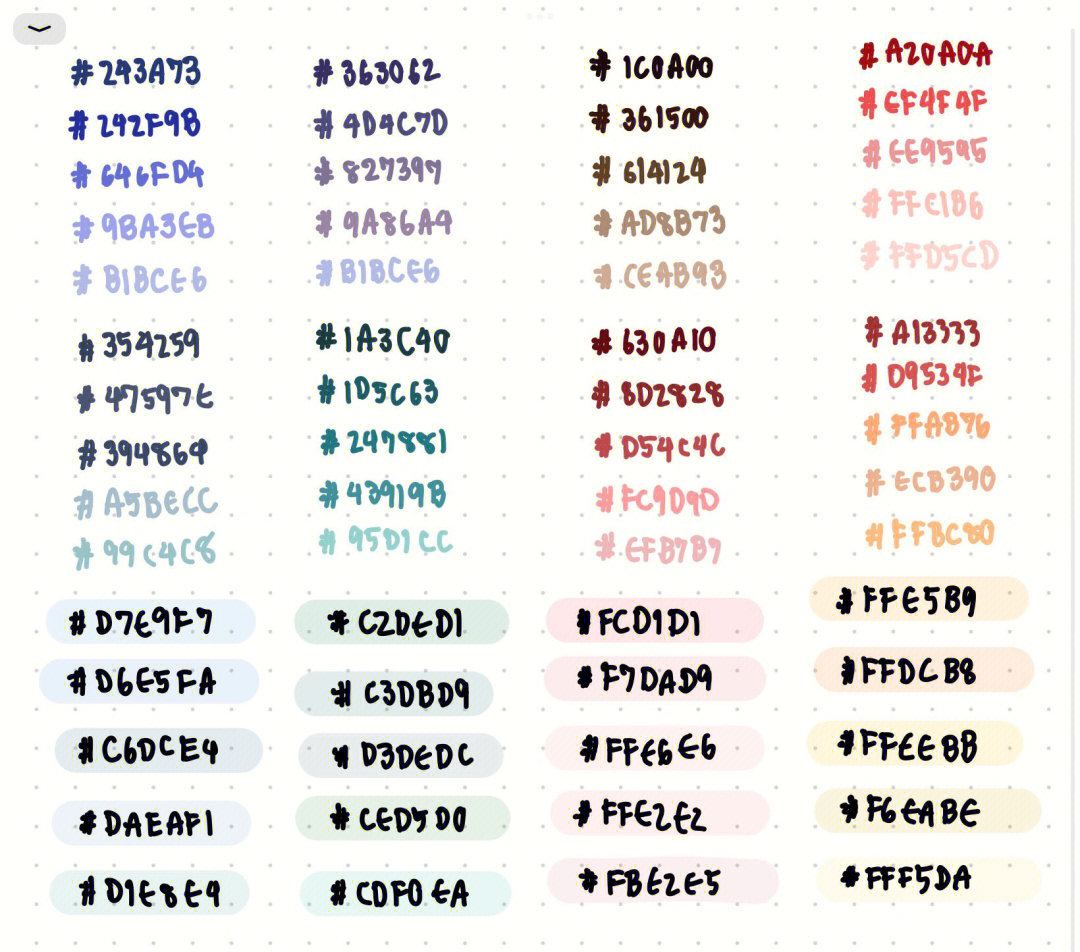 #243A73
#242F9B
#646FD4
#9BA3EB
#B1BCE6
#354259
#47597E
#394869
#A5BECC
#99C4C8
#D7E9F7
#D6E5FA
#C6DCE4
#DAEAF1
#D1E8E4
#363062
#4D4C7D
#827397
#9A86A4
#B1BCE6
#1A3C40
#1D5C63
#247881
#43919B
#95D1CC
#C2DED1
#C3DBD9
#D3DEDC
#CED5D0
#CDF0EA
#1C0A00
#361500
#614124
#AD8B73
#CEAB93
#630A10
#8D2828
#D54C4C
#FC9D9D
#EFB7B7
#FCD1D1
#F7DAD9
#FFE6E6
#FFE2E2
#FBE2E5
#A20A0A
#EF4F4F
#EE9595
#FFC1B6
#FFD5CD
#A13333
#D9534F
#FFAB76
#ECB390
#FFBC80
#FFE5B9
#FFDCB8
#FFEEBB
#F6EABE
#FFF5DA